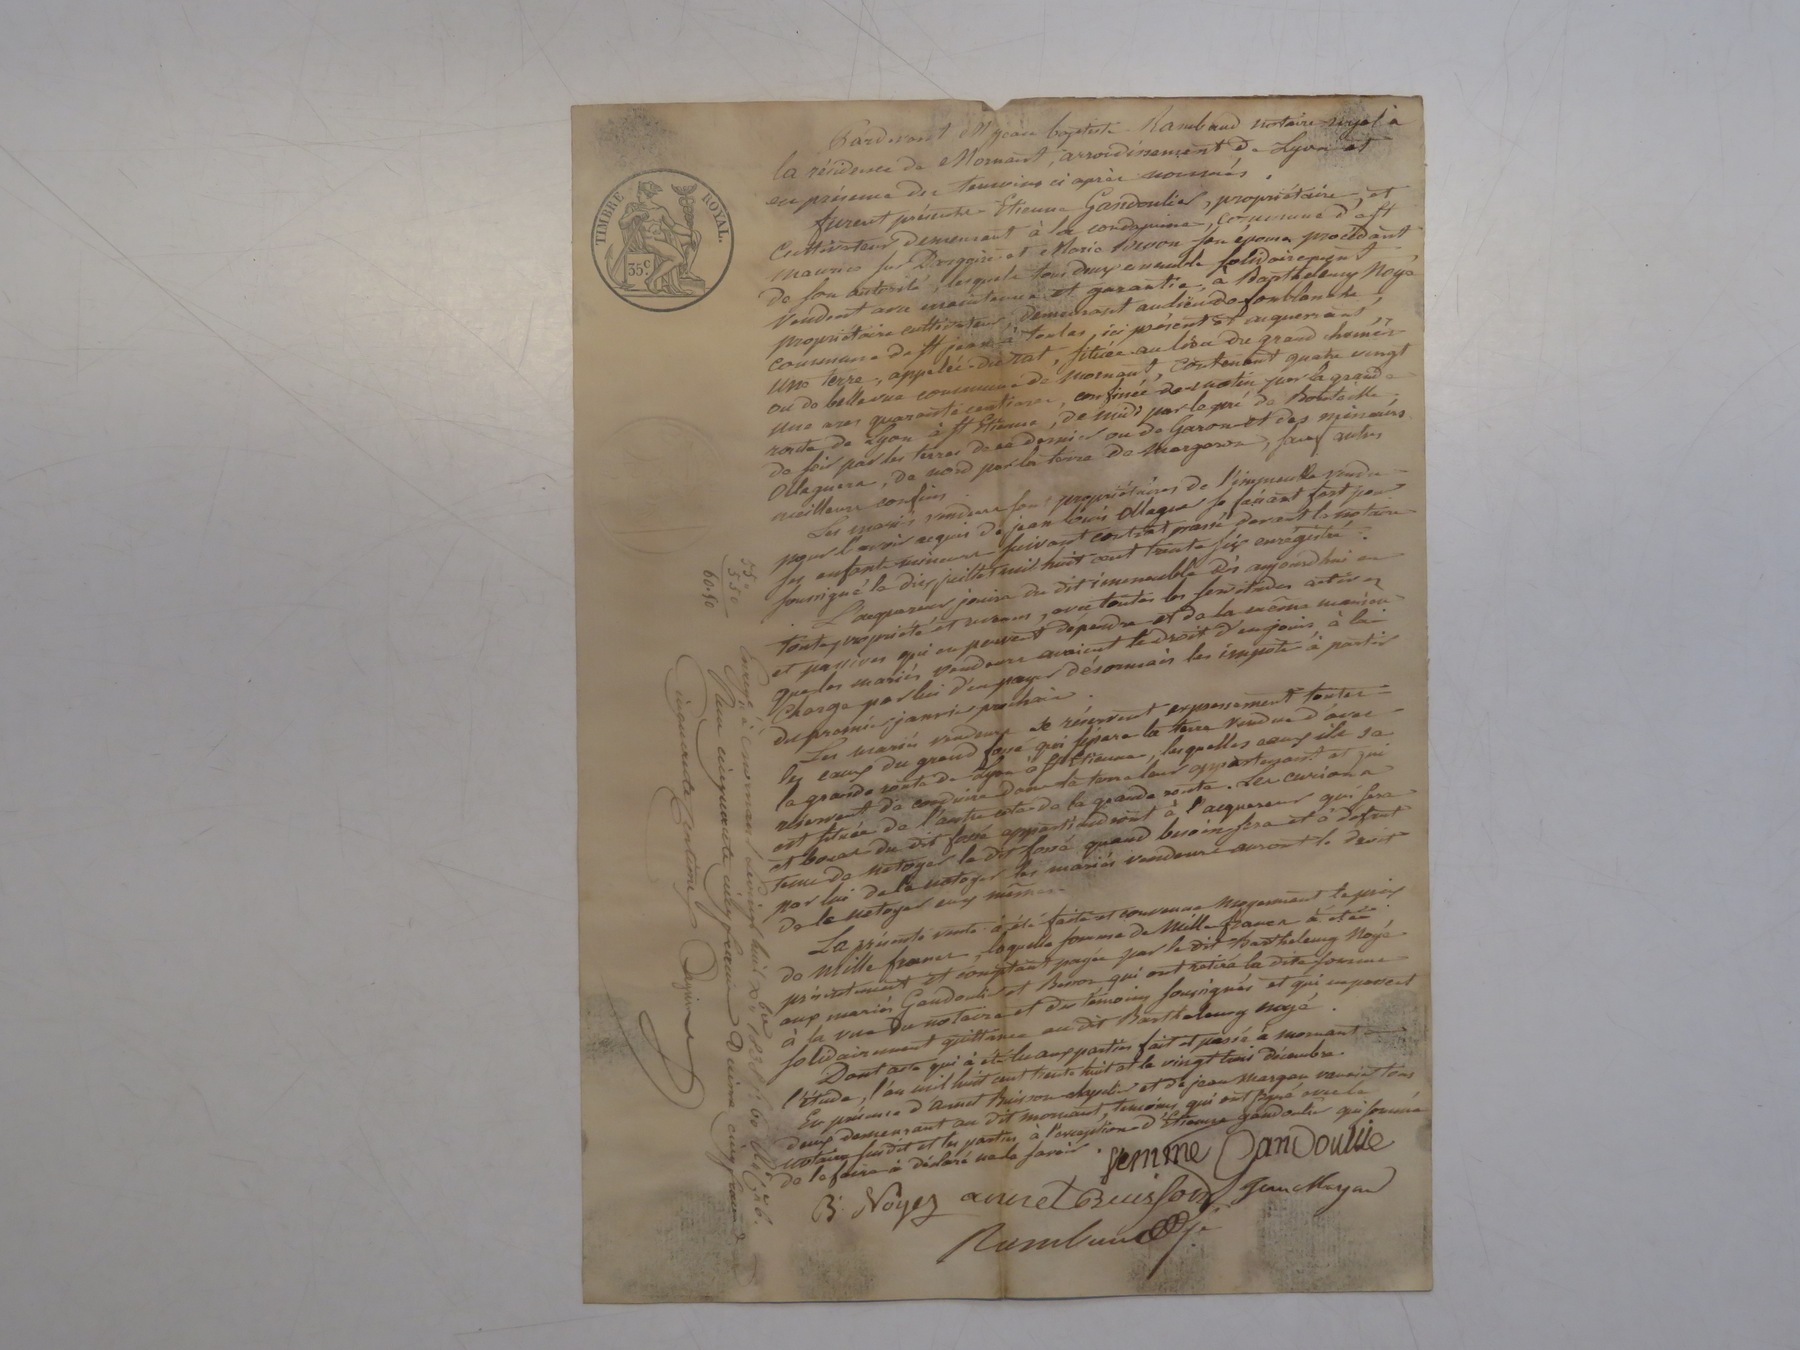 TIMBRE ROYAL.
35 c.
Pardevant Mr jean baptiste Rambaud notaire royal à
la résidence de Mornant, arrondissement de Lyon et
en présence des temoins ci après nommés,
furent présents Etienne Gandoulié, propriétaire, et
cultivateur demeurant à la condamine, commune d'st
maurice sur Dargoire et Marie Besson son épouse procédant
de son autorité, lesquels tous deux ensemble solidairement
vendent avec maintenue et garantie, à Barthelemy Noyé
propriétaire cultivateur, demeurant au lieu de fonblanche,
commune de st jean à toulas, ici présent et acquerrant,
une terre, appelée , située au lieu du grand chemin
ou de bellevue commune de mornant, contenant quatre vingt
une ares quarante centiares, confinée de matin par la grande
route de Lyon à St Etienne, de midi par le pré de
de soir par les terres de ce dernier ou de Garon et des mineurs
Ollagues, de nord par la terre de , sauf autres
meilleurs confins.
Les mariés vendeurs sont propriétaires de l'immeuble vendu
pour l'avoir acquis de jean louis Ollague se faisant fort pour
ses enfants mineurs suivant contrat passé devant le notaire
soussigné le dix juillet mil huit cent trente six enregistré.
L'acquereur jouira du dit immeuble dès aujourd'hui en
toute propriété et revenus, avec toutes les servitudes actives
et passives qui en peuvent dépendre et de la même manière
que les mariés vendeurs avaient le droit d'en jouir à la
charge par lui d'en payer désormais les impôts à partir
du premier janvier prochain.
Les mariés vendeurs se réservent expressement toutes
les eaux du grand fossé qui sépare la terre vendue d'avec
la grande route de Lyon à St Etienne, lesquelles eaux ils se
réservent de conduire dans la terre leur appartenant et qui
est située de l'autre coté de la grande route. Les curions
et boues du dit fossé appartiendront à l'acquereur qui sera
tenu de netoyer le dit fossé quand besoin sera et à defaut
par lui de le netoyer les mariés vendeurs auront le droit
de le netoyer eux mêmes.
La présente vente à été faite et convenue moyennant le prix
de Mille francs, laquelle somme de Mille francs à été
présentement et comptant payée par le dit Barthelemy Noyé
aux mariés Gandoulié et Besson qui ont retiré la dite somme
à la vue du notaire et des témoins soussignés et qui en passent
solidairement quittance au dit Barthelemy noyé.
Dont acte qui à été lu aux parties fait et passé à mornant
l'étude, l'an mil huit cent trente huit et le vingt trois décembre.
En présence d'annet Buisson et de jean margau tous
deux demeurant au dit mornant, temoins qui ont signé avec le
notaire susdit et les parties à l'exception d'Etienne gandoulié qui sommé
de le faire à déclaré ne le savoir.
femme Gandoulié
B. Noyez annet Buisson Jean Margau
Rambaud
55"
5.50
60.50
Enregé à mornant le vingt huit Xbre 1838
Reçu cinquante cinq francs Dixième cinq francs
cinquante centimes